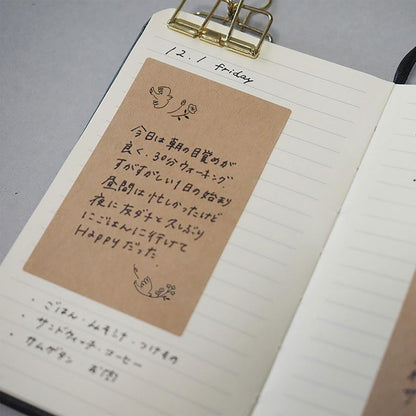 12.1 friday
今日は朝の目覚めが
良く、30分ウォーキング.
すがすがしい1日の始まり
昼間は忙しかったけど
夜に友ダチと久しぶり
にごはんに行けて
Happyだった
・ごはん・みそしる・つけもの
・サンドウィッチ・コーヒー
・サムゲタン